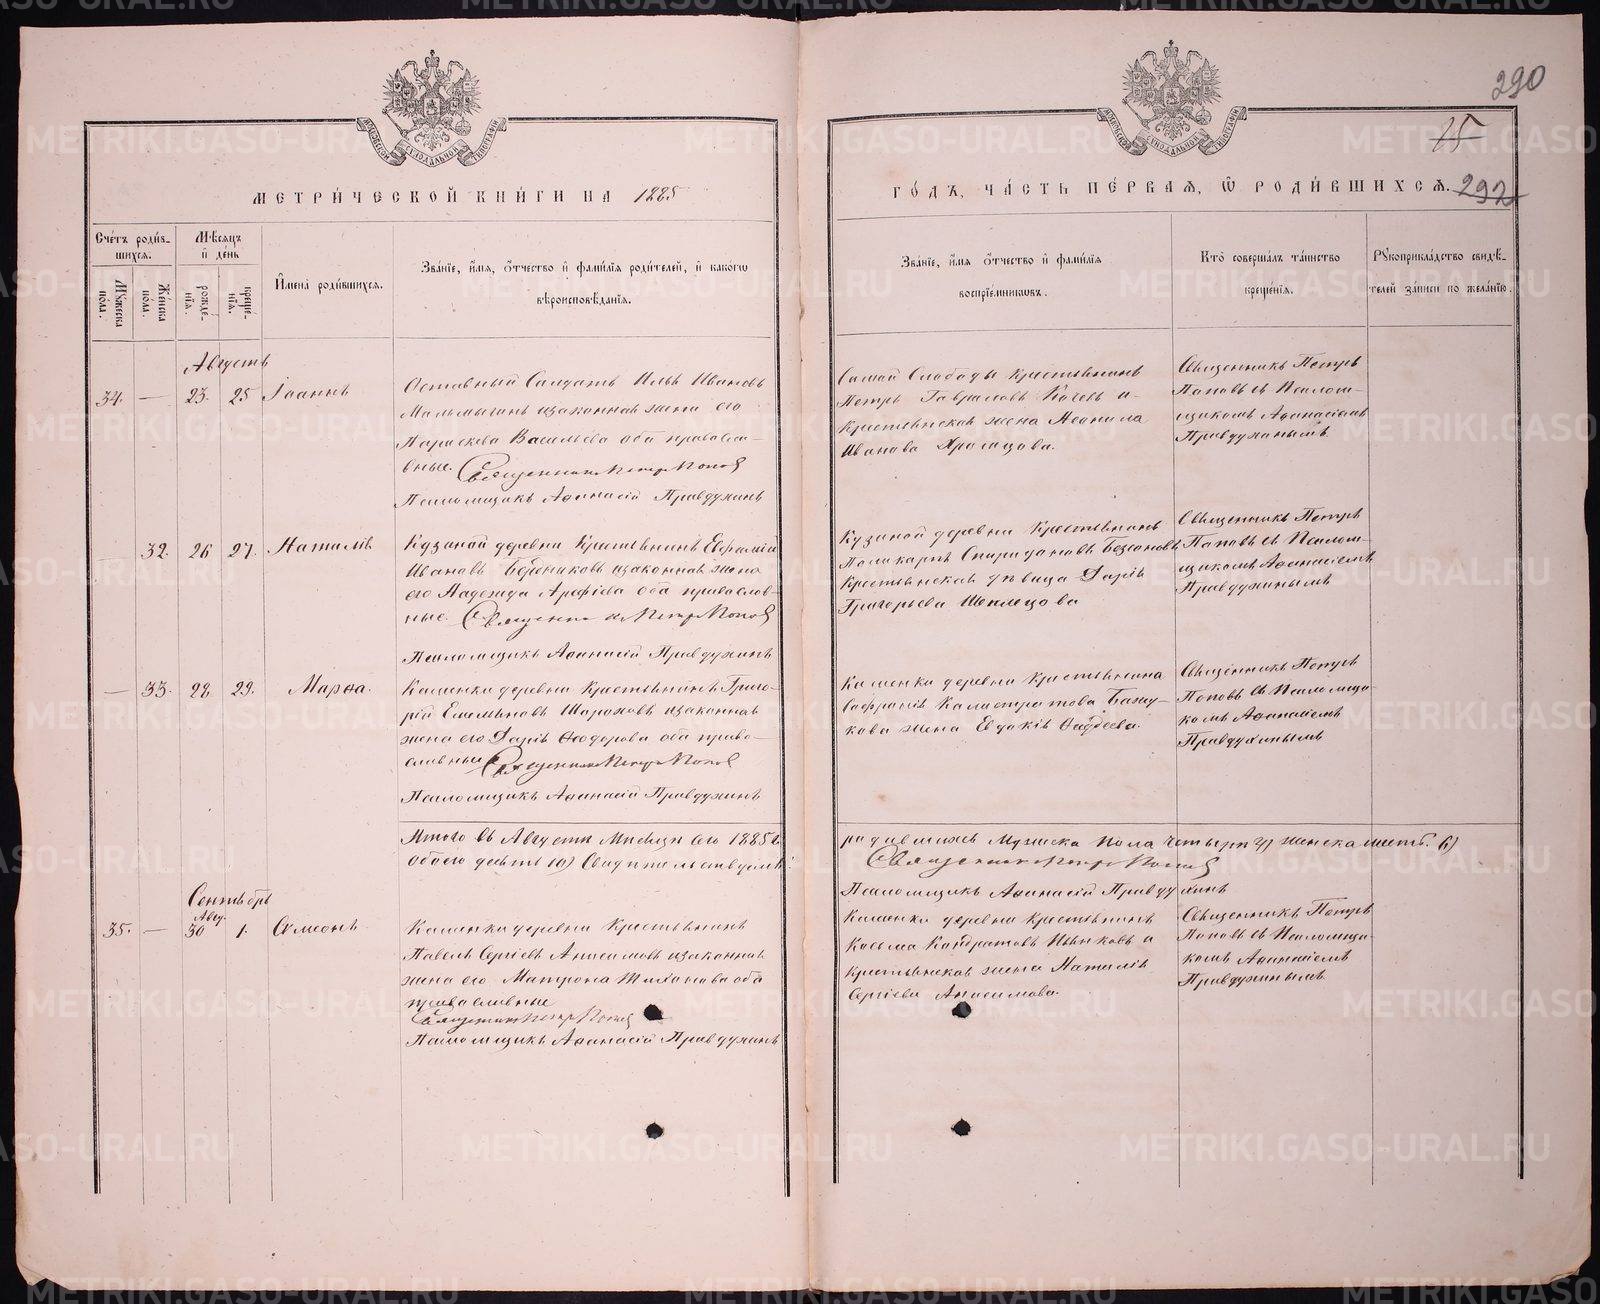 290
15
МЕТРИ́ЧЕСКОЙ КНИ́ГИ НА 1885
ГО́ДЪ, ЧА́СТЬ ПЕ́РВАЯ, Ѡ РОДИ́ВШИХСЯ.
292
Сче́тъ роди́в-
шихся.
Мꙋ́жеска пола.
Же́нска пола.
Мѣ́сяцъ
и҆ де́нь
рожде́-
нїя.
креще́-
нїя.
И҆мена̀ роди́вшихся.
Зва́нїе, и҆́мя, о҆́тчество и҆ фамѵ́лїѧ роди́телей, и҆ како́гѡ
вѣроисповѣ́данїѧ.
Зва́нїе, и҆́мя о҆́тчество и҆ фамѵ́лїѧ
воспрїе́мникѡвъ.
Кто̀ соверша́лъ та́инство
креще́нїя.
Рꙋкоприкла́дство свидѣ́-
телей за́писи по жела́нїю.
Августъ
34. — 23. 25 Іоаннъ
Оставный Солдатъ Илья Ивановъ
Мальмыгинъ изаконная жена его
Параскева Васильева оба правосла-
вные. Священникъ Петръ Поповъ
Псаломщикъ Афанасій Правдухинъ
Самой Слободы крестьянинъ
Петръ Гавриловъ Кочев и
крестьянская жена Неонила
Иванова Храмцова.
Священникъ Петръ
Поповъ съ Псалом-
щикомъ Афанасіемъ
Правдухинымъ.
— 32. 26 27. Наталія
Кузиной деревни Крестьянинъ Евфимій
Ивановъ Бердниковъ изаконная жена
его Надежда Арефіева оба православ-
ные. Священникъ Петръ Поповъ
Псаломщикъ Афанасій Правдухинъ
Кузиной деревни Крестьянинъ
Поликарпъ Спиридоновъ Безсоновъ
Крестьянская дѣвица Дарія
Григорьева Шеплецова
Священникъ Петръ
Поповъ съ Псалом-
щикомъ Афанасіемъ
Правдухинымъ
— 33. 28 29. Марѳа.
Каменки деревни Крестьянинъ Григо-
рій Емельяновъ Шароховъ изаконная
жена его Дарія Ѳеодорова оба право-
славные Священникъ Петръ Поповъ
Псаломщикъ Афанасій Правдухинъ
Каменки деревни крестьянина
Сафронія Калистратова
жена Евдокія Фадѣева.
Священникъ Петръ
Поповъ съ Псаломщи-
комъ Афанасіемъ
Правдухинымъ
Итого въ Августѣ Мѣсяцѣ сего 1885 г.
родившихъ Мужеска пола четыри 4) женска шесть 6)
обоего десять 10) Свидѣтельствуемъ:
Священникъ Петръ Поповъ
Псаломщикъ Афанасій Правдухинъ
Сентябрь
Авгу.
35. — 30 1. Сѵмеонъ
Каменки деревни Крестьянинъ
Павелъ Сергіевъ Анисимовъ изаконная
жена его Матрона Тиханова оба
православные
Священникъ Петръ Поповъ
Псаломщикъ Афанасій Правдухинъ
Каменки деревни крестьянинъ
Косьма Кондратовъ Иваковъ и
крестьянская жена Наталія
Сергіева Анисимова.
Священникъ Петръ
Поповъ съ Псаломщи-
комъ Афанасіемъ
Правдухинымъ
METRIKI.GASO-URAL.RU